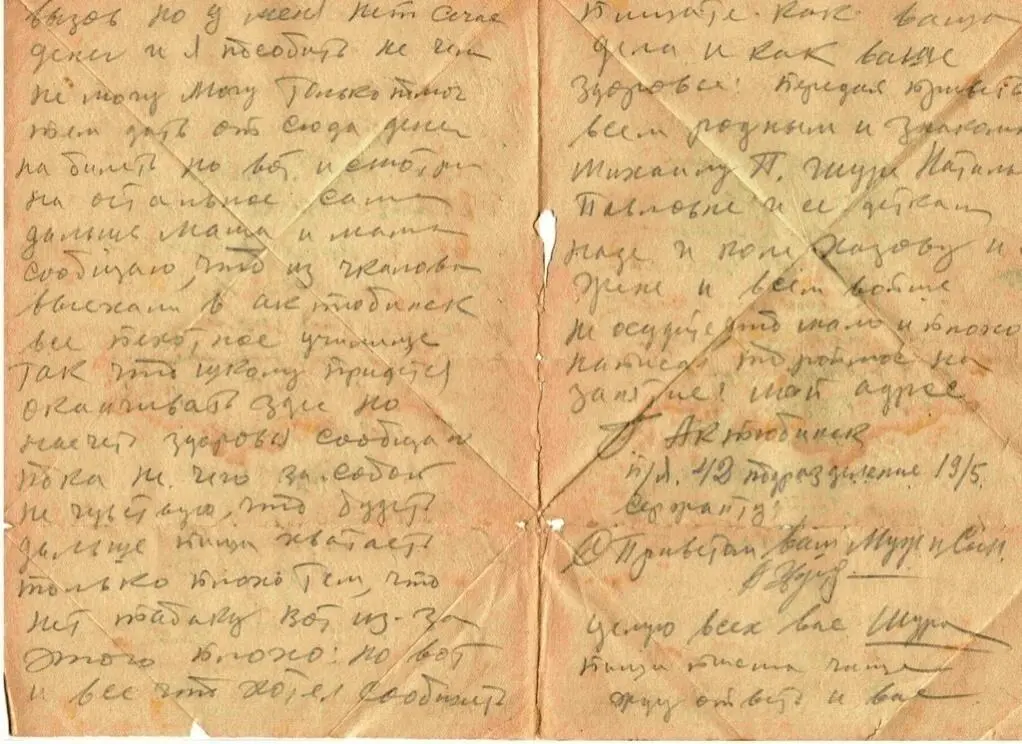 вызов но у меня нет сичас
денег и я пособить не чем
не могу могу только
тем дать от сюда денег
на билеть но вот и смотри
на остальное сама
дальше Маша и мама
сообщаю, что из чкалова
выехали в актюбинск
все пехотное училище
так что школу придется
оканчивать здес но
насчет здоровья сообщаю
пока не чего за собой
не чувствую, что будеть
дальше пища хватаеть
только плохо тем, что
нет табаку вот из-за
этого плохо: но вот
и все что хотел сообщить
Пишите как ваши
дела и как ваше
здоровье! передай привет
всем родным и знакомы
Михаилу П. Шуре Наталь
Павловне и ее деткам
наде и коле Хазову и
Жене и всем
не осудите что мало и плохо
написал на
занятие! мой адрес
г Актюбинск
п/я. 42 подразделение 19/5.
сержанту:
С Приветом ваш Муж и Сын.
целую всех вас Шура
пиши письма чаще
жду ответь и вас